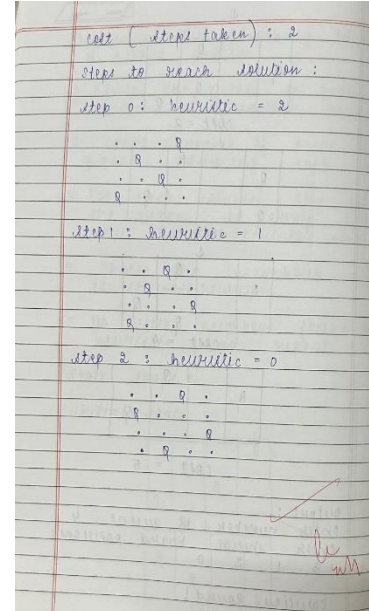 cost ( steps taken ) : 2
steps to reach solution :
step 0 : heuristic = 2
. . . Q
. Q . .
. . Q .
Q . . .
step 1 : heuristic = 1
. . Q .
. Q . .
. . . Q
Q . . .
step 2 : heuristic = 0
. . Q .
Q . . .
. . . Q
. Q . .